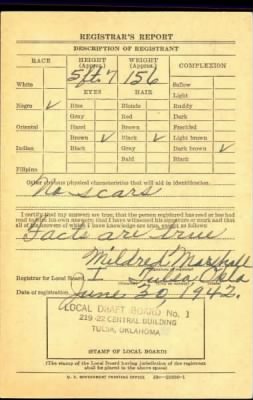 REGISTRAR'S REPORT
DESCRIPTION OF REGISTRANT
RACE HEIGHT (Approx.) WEIGHT (Approx.) COMPLEXION
5 ft. 7 156
White Sallow
EYES HAIR Light
Negro ✓ Blue Blonde Ruddy
Gray Red Dark
Oriental Hazel Brown Freckled
Brown ✓ Black ✓ Light brown
Indian Black Gray Dark brown ✓
Bald Black
Filipino
Other obvious physical characteristics that will aid in identification
No scars
I certify that my answers are true; that the person registered has read or has had
read to him his own answers; that I have witnessed his signature or mark and that
all of his answers of which I have knowledge are true, except as follows:
Facts are true
Mildred Marshall
Registrar for Local Board I Tulsa Okla
Date of registration June 30, 1942.
LOCAL DRAFT BOARD No. 1
219-22 CENTRAL BUILDING
TULSA, OKLAHOMA
(STAMP OF LOCAL BOARD)
(The stamp of the Local Board having jurisdiction of the registrant
shall be placed in the above space)
U. S. GOVERNMENT PRINTING OFFICE